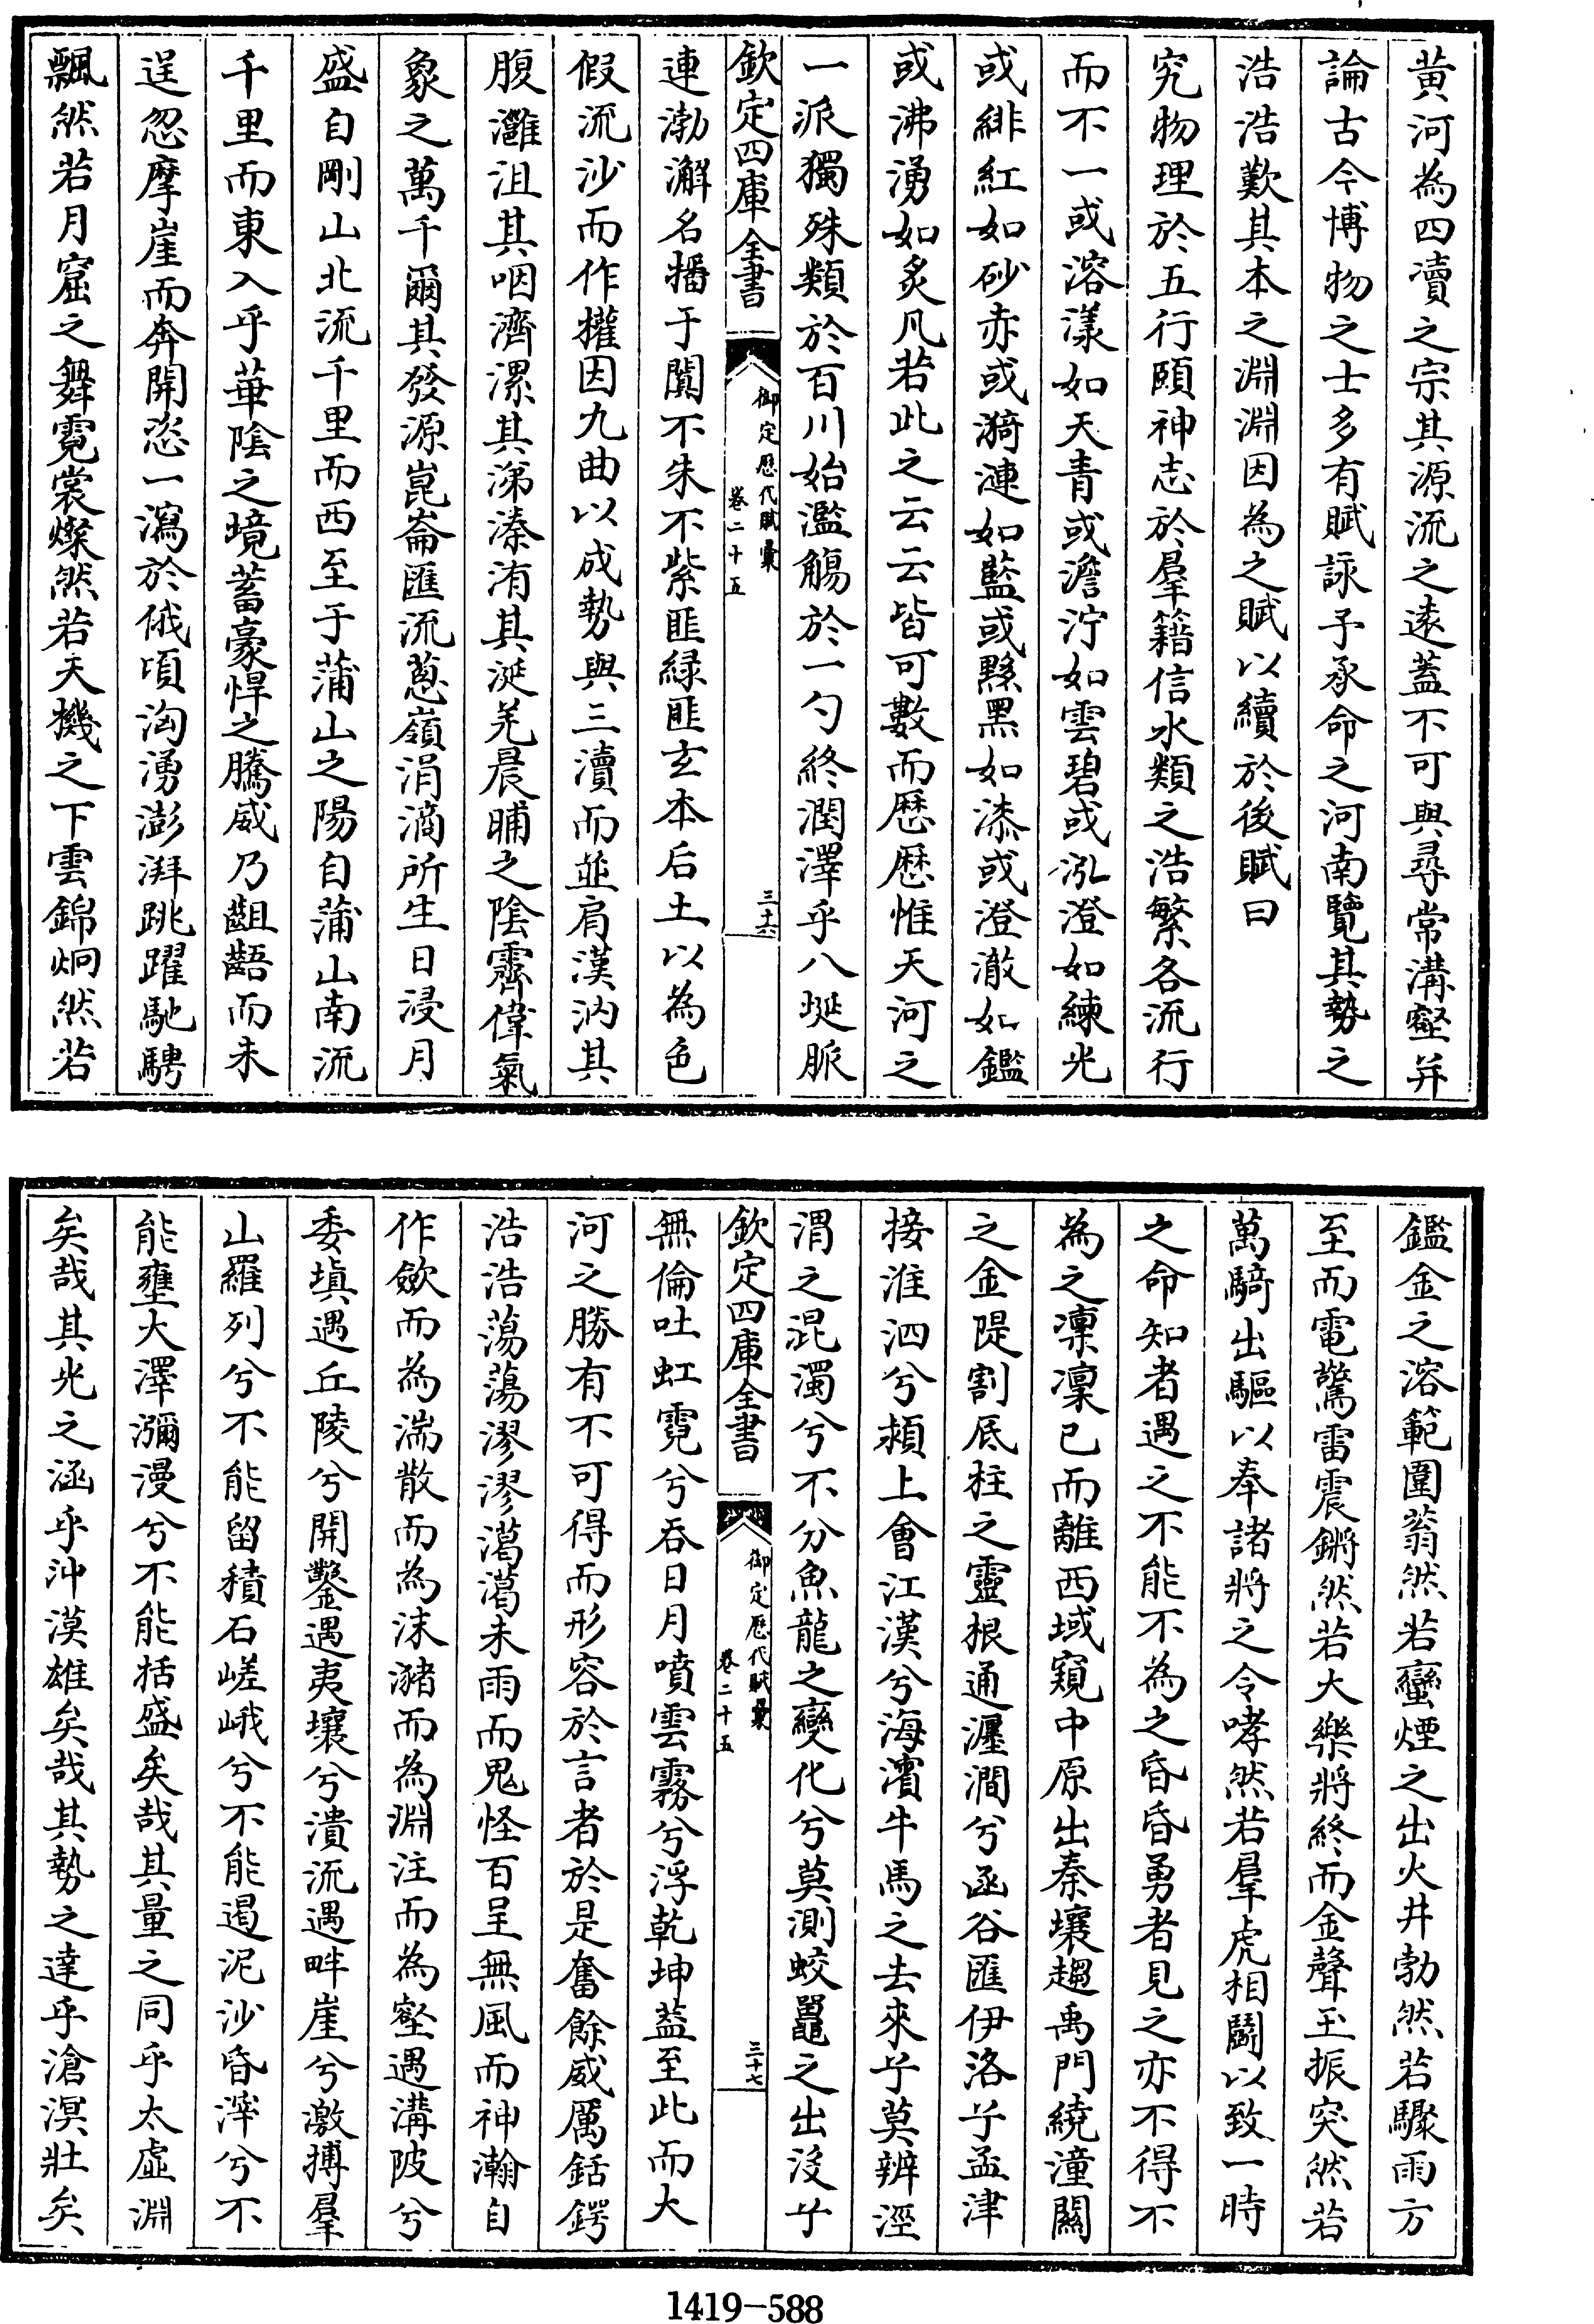 黄河為四瀆之宗其源流之遠蓋不可與尋常溝壑并
論古今博物之士多有賦詠予承命之河南覽其勢之
浩浩歎其本之淵淵因為之賦以續於後賦曰
究物理於五行頤神志於羣籍信水類之浩繁各流行
而不一或溶漾如天青或澹泞如雲碧或泓澄如練光
或緋紅如砂赤或漪漣如藍或黟黑如漆或澄澈如鑑
或沸湧如炙凡若此之云云皆可數而歴歴惟天河之
一派獨殊類於百川始濫觴於一勺終潤澤乎八埏脈
欽定四庫全書
御定歴代賦彙
卷二十五
三十六
連渤澥名播于闐不朱不紫匪緑匪玄本后土以為色
假流沙而作權因九曲以成勢與三瀆而並肩漢汭其
腹灉沮其咽濟漯其涕溱洧其涎羌晨晡之陰霽偉氣
象之萬千爾其發源崑崙匯流蔥嶺涓滴所生日浸月
盛自剛山北流千里而西至于蒲山之陽自蒲山南流
千里而東入乎華陰之境蓄豪悍之騰威乃齟齬而未
逞忽摩崖而奔開恣一瀉於俄頃洶湧澎湃跳躍馳騁
飄然若月窟之舞霓裳燦然若天機之下雲錦炯然若
鑑金之溶範圍蓊然若蠻煙之出火井勃然若驟雨方
至而電驚雷震鏘然若大樂將終而金聲玉振突然若
萬騎出驅以奉諸將之令哮然若羣虎相鬬以致一時
之命知者遇之不能不為之昏昏勇者見之亦不得不
為之凜凜已而離西域窺中原出秦壤趨禹門繞潼關
之金隄割底柱之靈根通瀍澗兮函谷匯伊洛兮孟津
接淮泗兮頫上會江漢兮海濱牛馬之去來兮莫辨涇
渭之混濁兮不分魚龍之變化兮莫測蛟鼉之出沒兮
欽定四庫全書
御定歴代賦彙
卷二十五
三十七
無倫吐虹霓兮吞日月噴雲霧兮浮乾坤蓋至此而大
河之勝有不可得而形容於言者於是奮餘威厲銛鍔
浩浩蕩蕩漻漻㵧㵧未雨而鬼怪百呈無風而神瀚自
作歛而為湍散而為沫瀦而為淵注而為壑遇溝陂兮
委塡遇丘陵兮開鑿遇夷壤兮潰流遇畔崖兮激搏羣
山羅列兮不能留積石嵯峨兮不能遏泥沙昏滓兮不
能壅大澤瀰漫兮不能括盛矣哉其量之同乎太虛淵
矣哉其光之涵乎沖漠雄矣哉其勢之達乎滄溟壯矣
1419-588